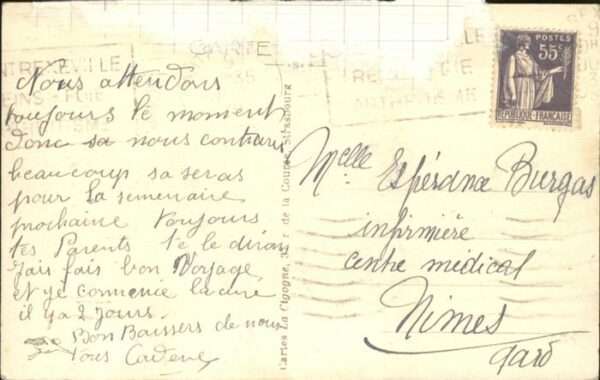 CARTE
POSTES
55c
RÉPUBLIQUE FRANÇAISE
Nous attendons
toujours le moment
donc sa nous contrari
beaucoup sa seras
pour la semenaire
prochaine toujours
tes Parents te le diron
Jais fais bon Voyage
et je commence la cure
il y a 2 Jours.
Bon Baissers de nous
Tous
Cartes La Cigogne, de la Course Strasbourg
Melle Espérance Burgas
infirmière
centre médical
Nimes
Gard